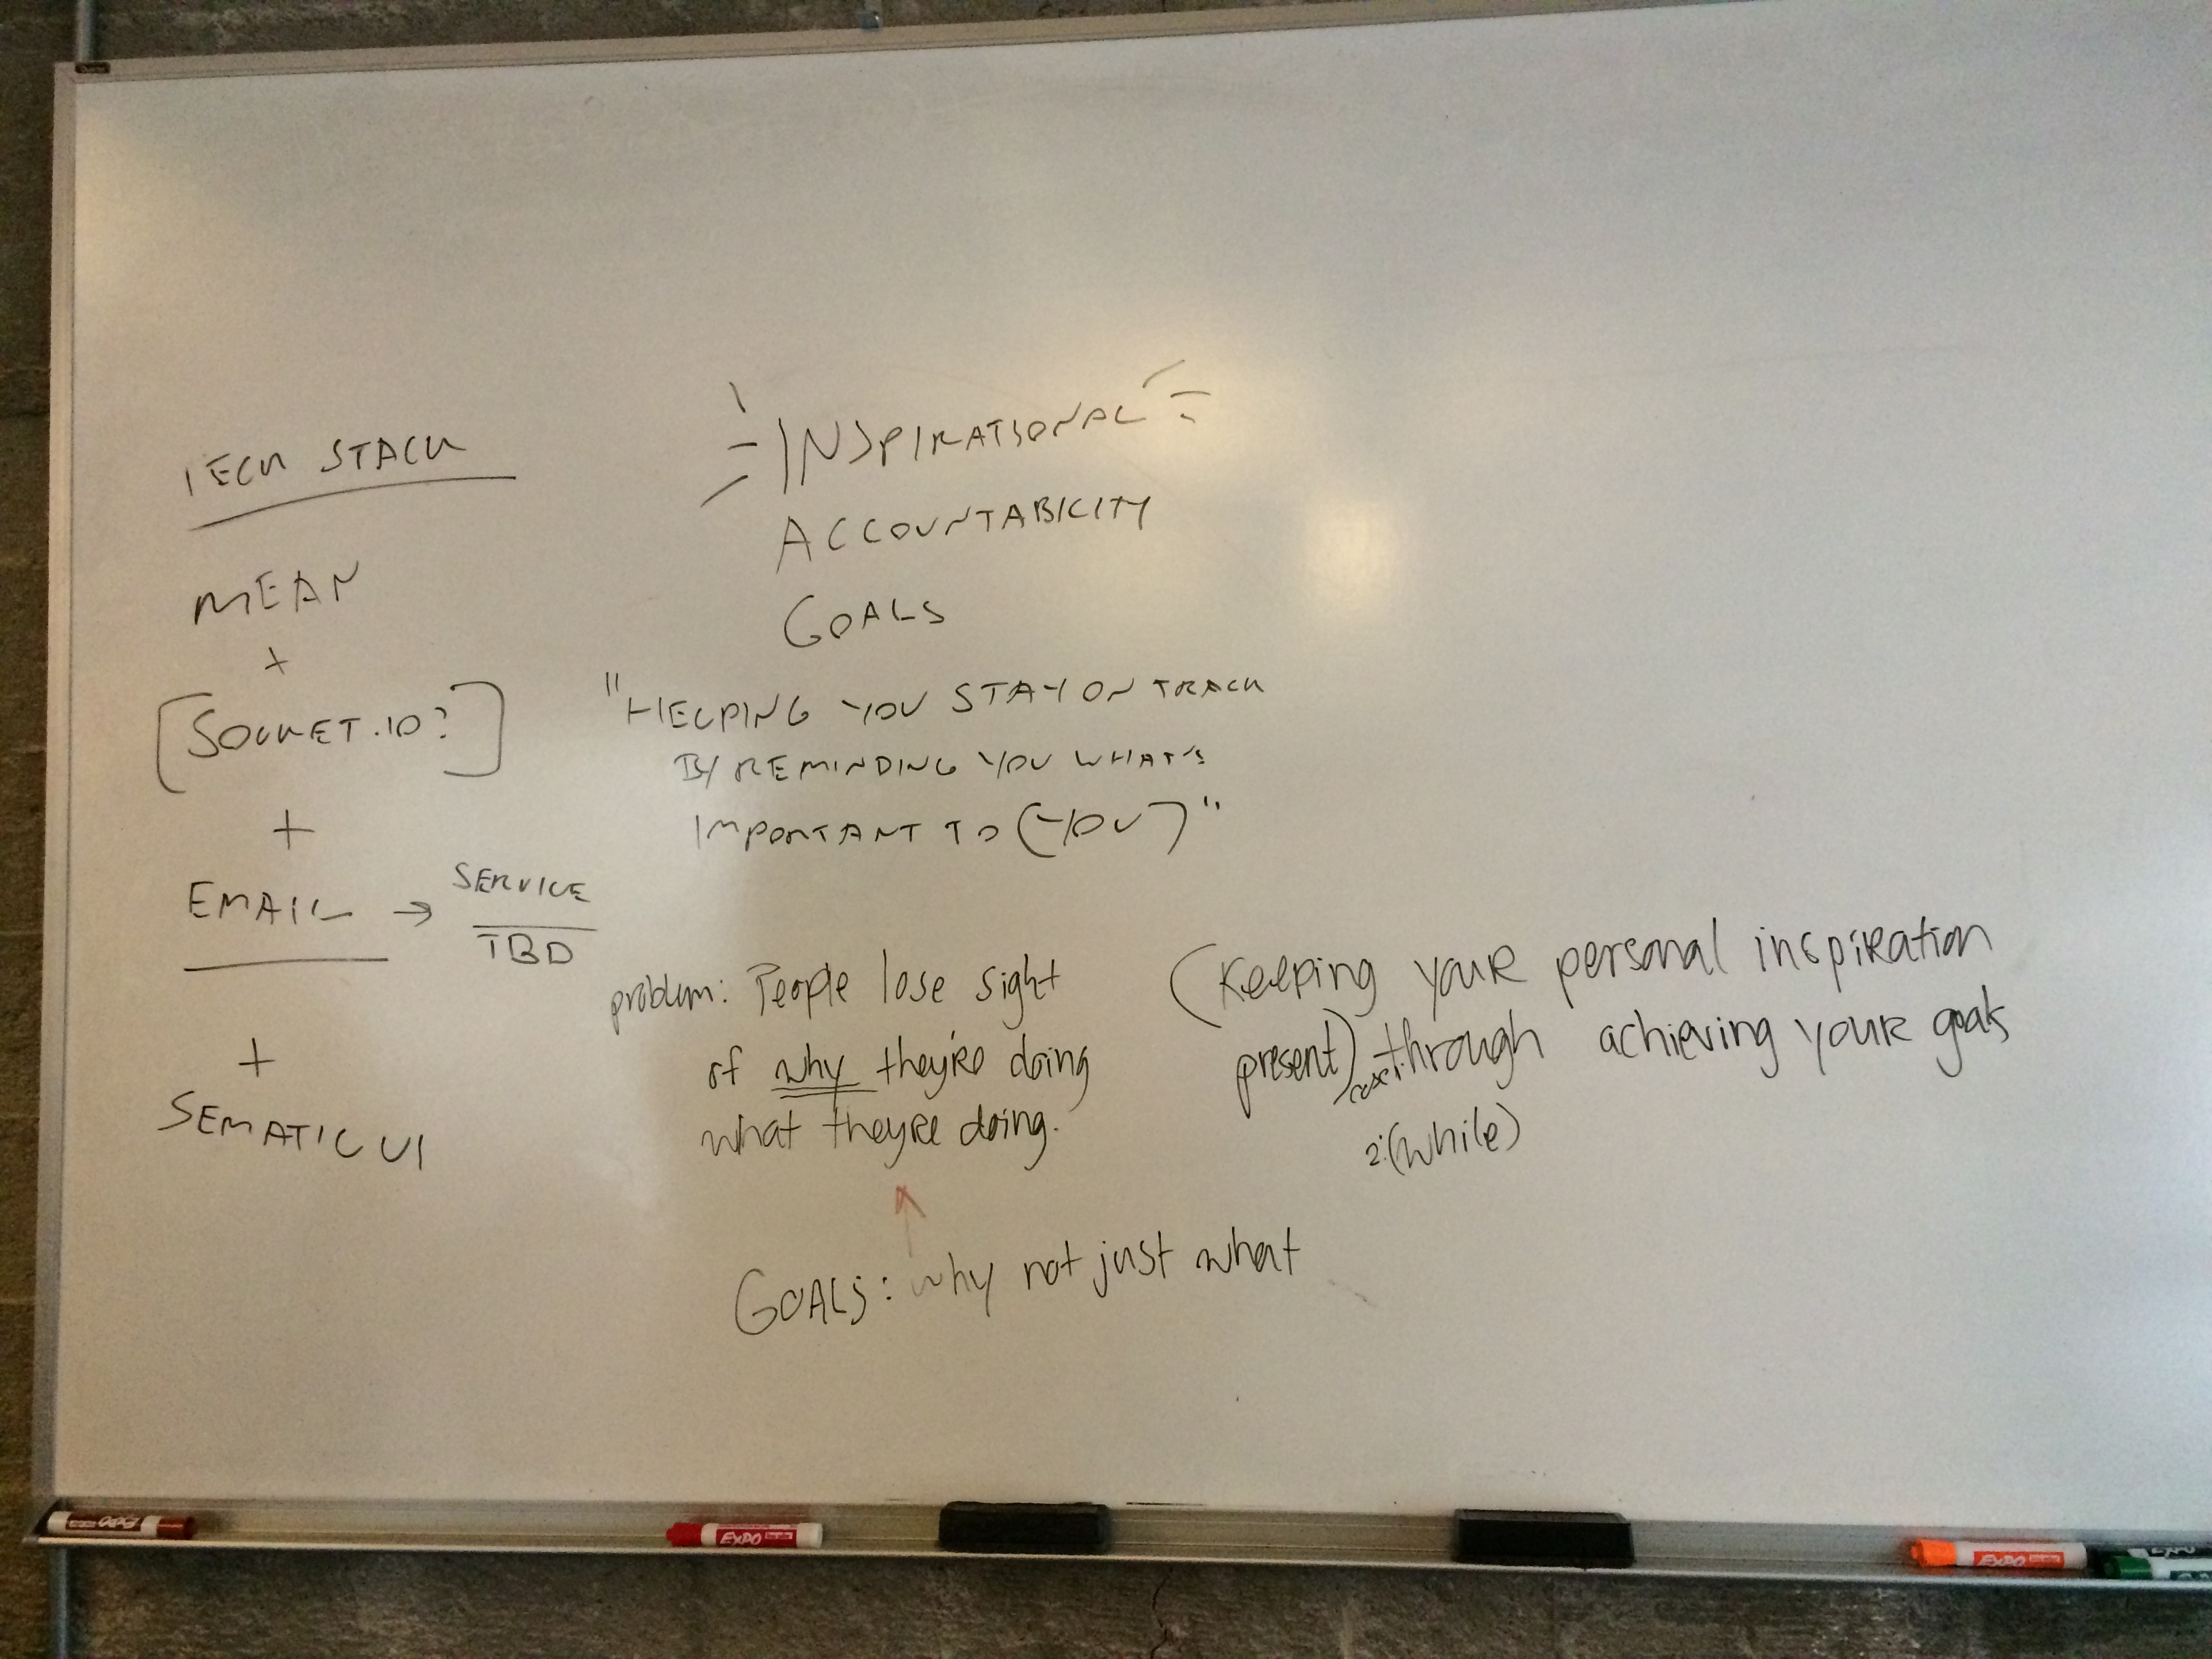 TECH STACK
MEAN
+
[SOCKET.IO?]
+
EMAIL → SERVICE
TBD
+
SEMATIC UI
INSPIRATIONAL
ACCOUNTABILITY
GOALS
"HELPING YOU STAY ON TRACK
BY REMINDING YOU WHAT'S
IMPORTANT TO (YOU)"
problem: People lose sight
of why they're doing
what they're doing.
GOALS: why not just what
(Keeping your personal inspiration
present) through achieving your goals
2:(while)
EXPO
EXPO
EXPO
EXPO